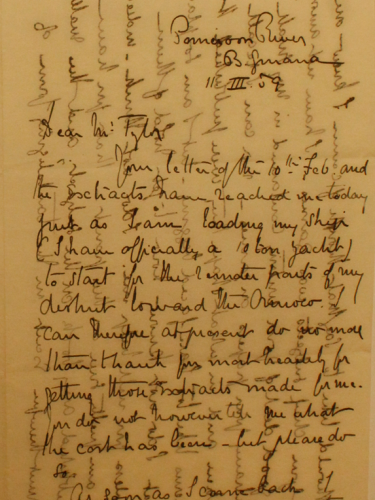 Pomeroon River
B. Guiana
11. III. 89
Dear Mr. Tylor
Your letter of the 10th Feb. and
the extracts have reached me today
just as I am loading my ship
(I have officially a 10 ton yacht)
to start for the remoter parts of my
district toward the Orinoco. I
can therefore at present do no more
than thank you most heartily for
getting those extracts made for me.
You do not however tell me what
the cost has been – but please do
so.
As soon as I come back I